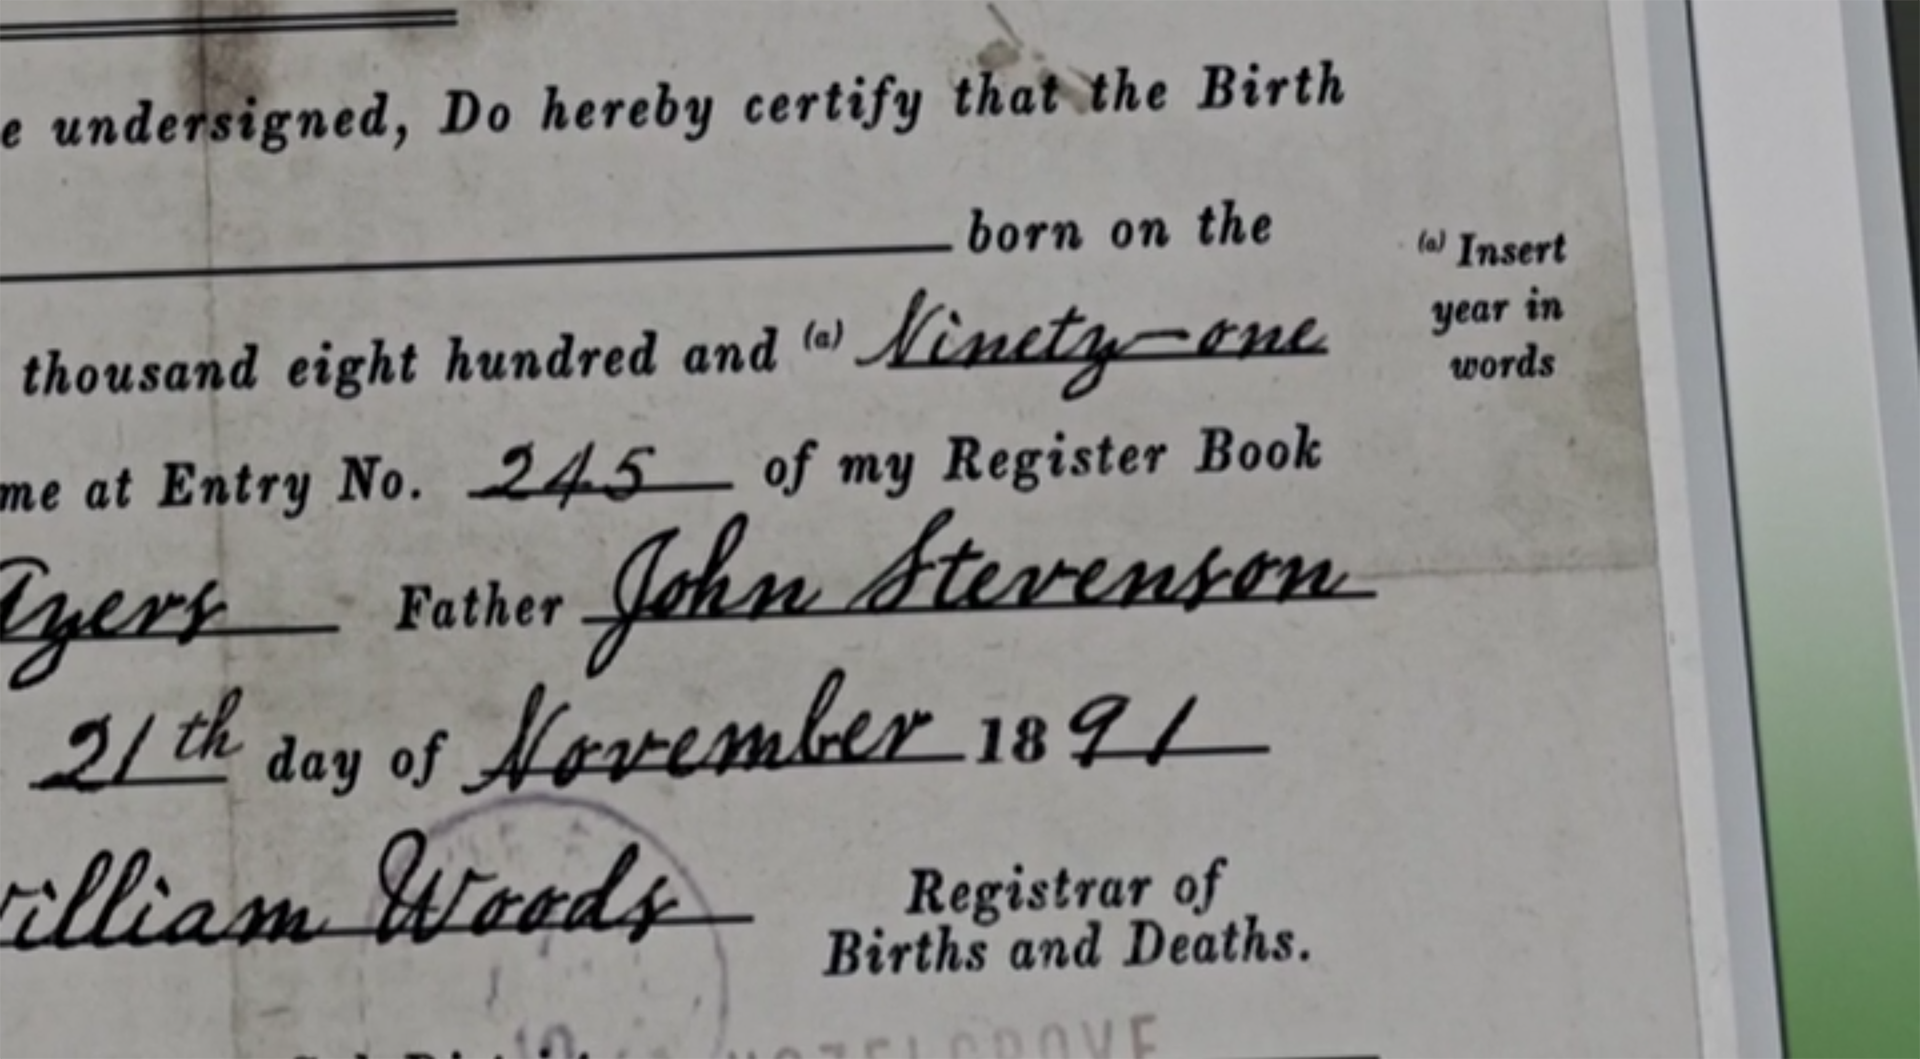 e undersigned, Do hereby certify that the Birth
born on the
(a) Insert
year in
words
thousand eight hundred and (a) Ninety-one
me at Entry No. 245 of my Register Book
Ayers Father John Stevenson
21th day of November 1891
William Woods Registrar of
Births and Deaths.
HAZELGROVE